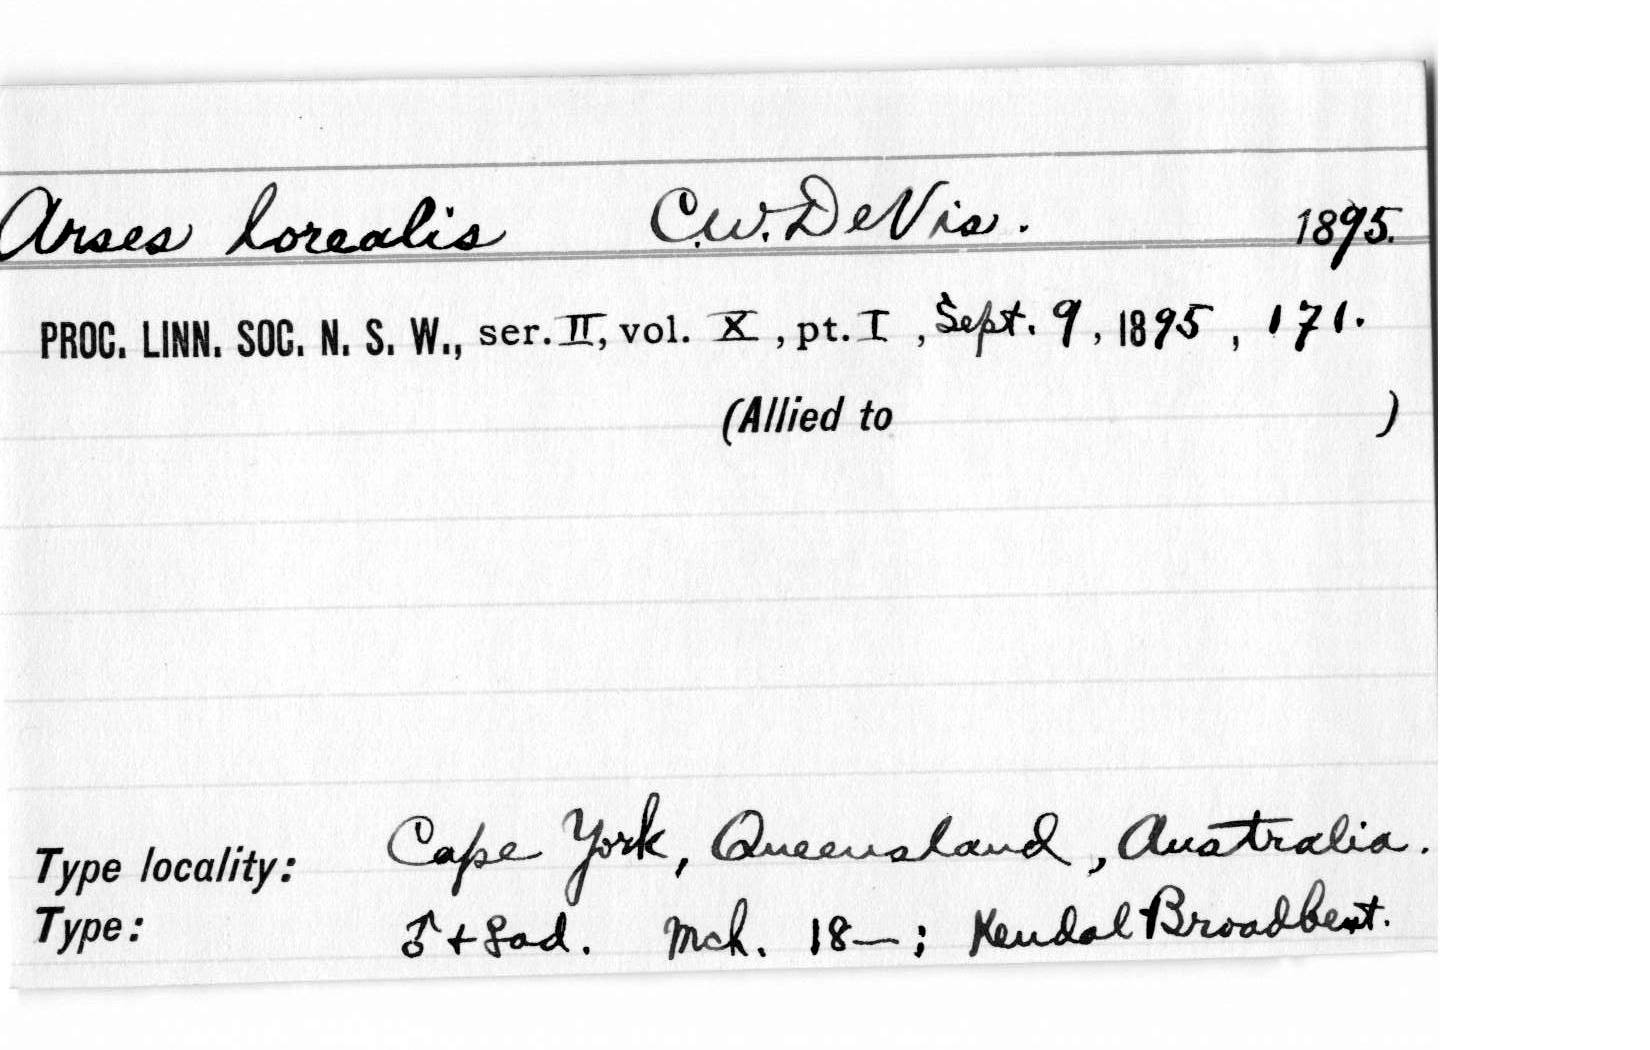 Arses lorealis C.W. De Vis. 1895.
PROC. LINN. SOC. N. S. W., ser. II, vol. X, pt. I, Sept. 9, 1895, 171.
(Allied to )
Type locality: Cape York, Queensland, Australia.
Type: ♂ + ♀ ad. Mch. 18—; Kendal Broadbent.